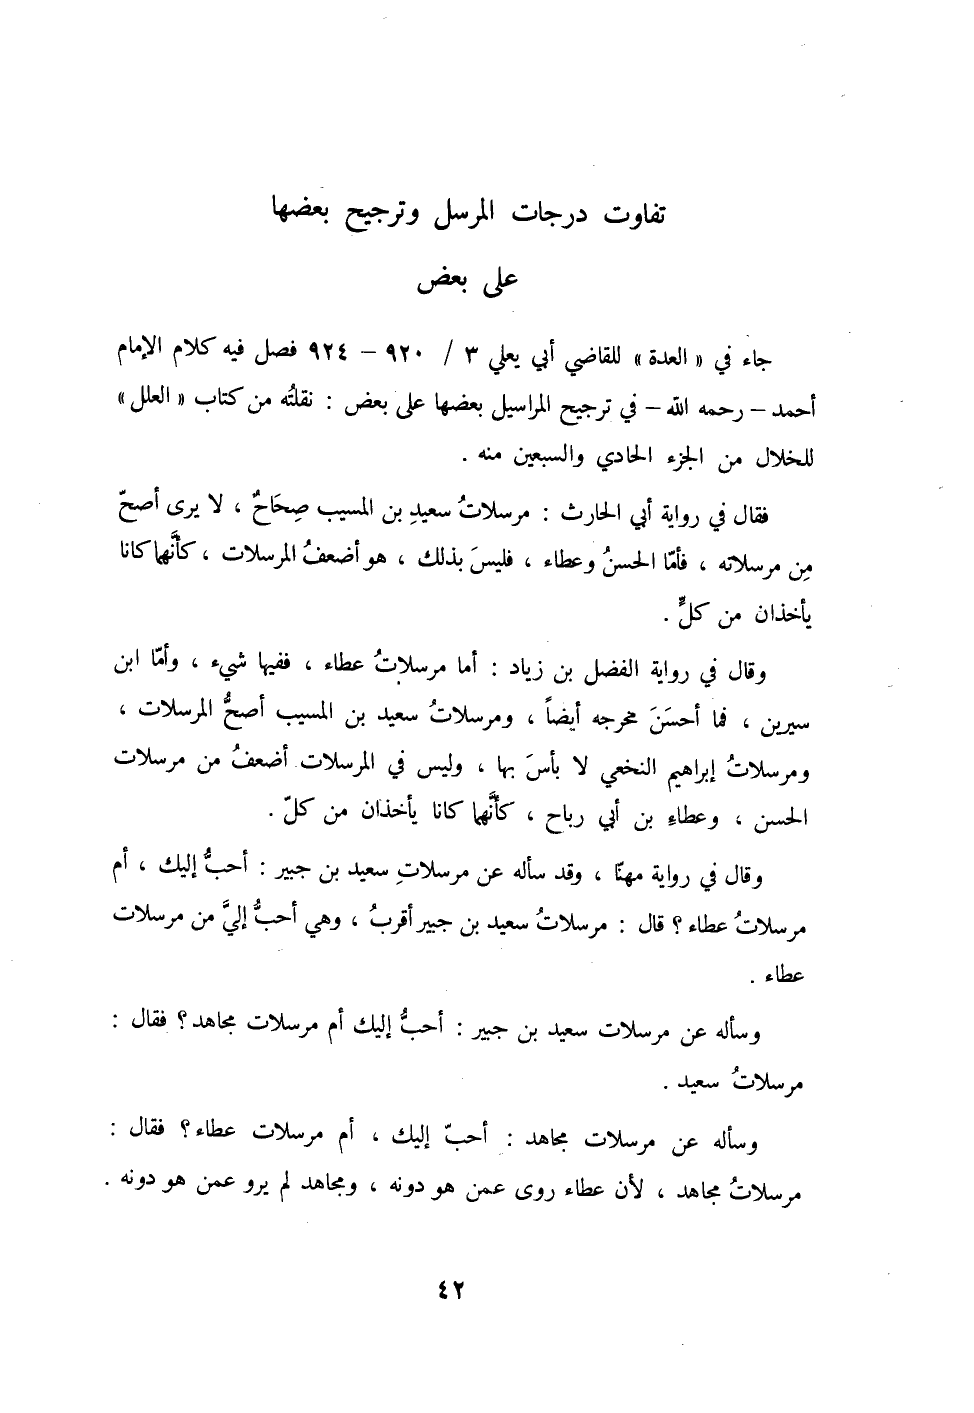 تفاوت درجات المرسل وترجيح بعضها
على بعض
جاء في « العدة » للقاضي أبي يعلي ٣ / ٩٢٠ – ٩٢٤ فصل فيه كلام الإمام
أحمد – رحمه الله – في ترجيح المراسيل بعضها على بعض : نقلتُه من كتاب « العلل »
للخلال من الجزء الحادي والسبعين منه .
فقال في رواية أبي الحارث : مرسلاتُ سعيدِ بن المسيب صِحَاحٌ ، لا يرى أصحّ
مِن مرسلاته ، فأمّا الحسنُ وعطاء ، فليسَ بذلك ، هو أضعفُ المرسلات ، كأنَّهما كانا
يأخذان من كلٍّ .
وقال في رواية الفضل بن زياد : أما مرسلاتُ عطاء ، ففيها شيء ، وأمّا ابن
سيرين ، فما أحسَنَ مخرجه أيضاً ، ومرسلاتُ سعيد بن المسيب أصحُّ المرسلات ،
ومرسلاتُ إبراهيم النخعي لا بأسَ بها ، وليس في المرسلات أضعفُ من مرسلات
الحسن ، وعطاءِ بن أبي رباح ، كأنَّهما كانا يأخذان من كلّ .
وقال في رواية مهنّا ، وقد سأله عن مرسلاتِ سعيد بن جبير : أحبُّ إليك ، أم
مرسلاتُ عطاء ؟ قال : مرسلاتُ سعيد بن جبير أقربُ ، وهي أحبُّ إليَّ من مرسلات
عطاء .
وسأله عن مرسلات سعيد بن جبير : أحبُّ إليك أم مرسلات مجاهد ؟ فقال :
مرسلاتُ سعيد .
وسأله عن مرسلات مجاهد : أحبّ إليك ، أم مرسلات عطاء ؟ فقال :
مرسلاتُ مجاهد ، لأن عطاء روى عمن هو دونه ، ومجاهد لم يرو عمن هو دونه .
٤٢